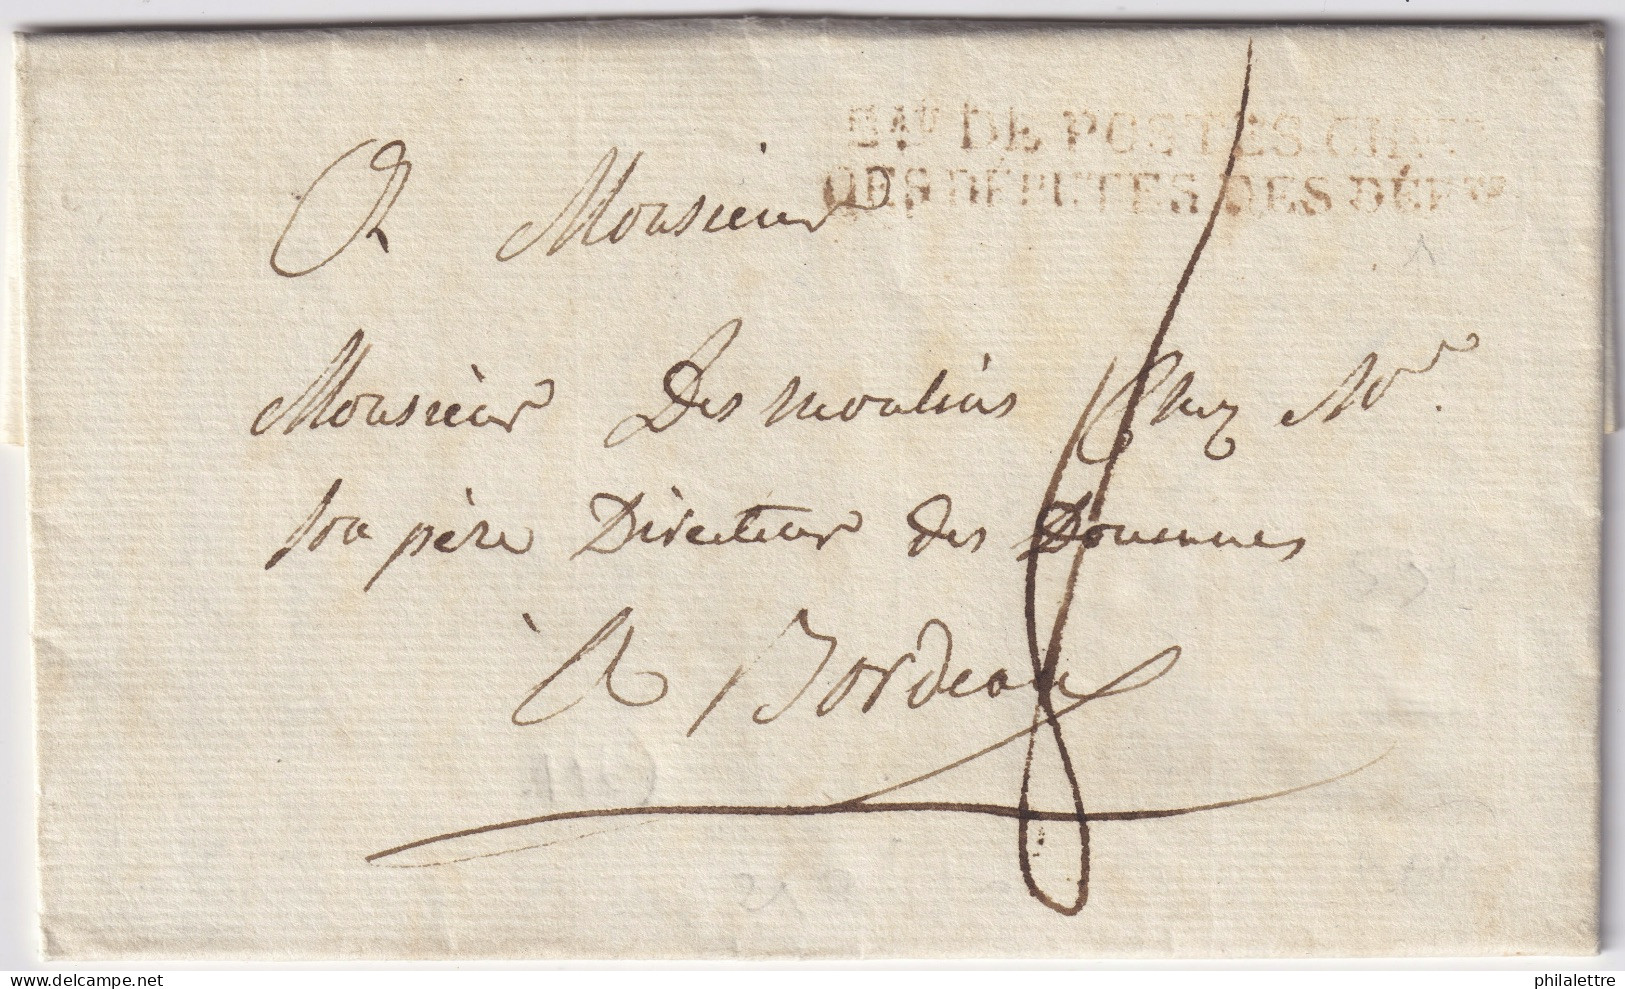 BAU DE POSTES CHBRE
DES DÉPUTÉS DES DÉPTS
A Monsieur
Monsieur Desmoulins Chez Mr.
son père Directeur des Douannes
à Bordeaux
8
philalettre